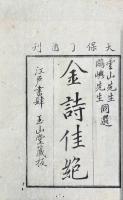 天保丁酉刊
雲山先生
鷗嶼先生 同選
金詩佳絶
江戸書肆 玉山堂藏板